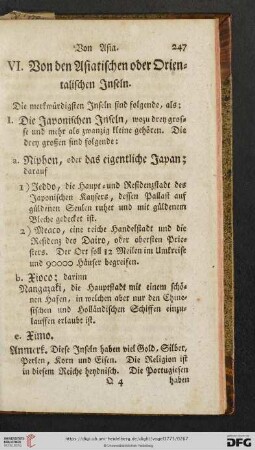 Von Asia. 247
VI. Von den Asiatischen oder Orien-
talischen Inseln.
Die merkwürdigsten Inseln sind folgende, als:
I. Die Japonischen Inseln, wozu drey gros-
se und mehr als zwanzig kleine gehören. Die
drey grossen sind folgende:
a. Niphon, oder das eigentliche Japan;
darauf
1) Jeddo, die Haupt- und Residenzstadt des
Japonischen Kaysers, dessen Pallast auf
güldenen Seulen ruhet und mit güldenem
Bleche gedecket ist.
2) Meaco, eine reiche Handelstadt und die
Residenz des Dairo, oder obersten Prie-
sters. Der Ort soll 12 Meilen im Umkreise
und 90000 Häuser begreifen.
b. Xicoco: darinn
Nangazaki, die Hauptstadt mit einem schö-
nen Hafen, in welchen aber nur den Chine-
sischen und Holländischen Schiffen einzu-
lauffen erlaubt ist.
c. Ximo.
Anmerk. Diese Inseln haben viel Gold, Silber,
Perlen, Korn und Eisen. Die Religion ist
in diesem Reiche heydnisch. Die Portugiesen
Q 4 haben
DFG